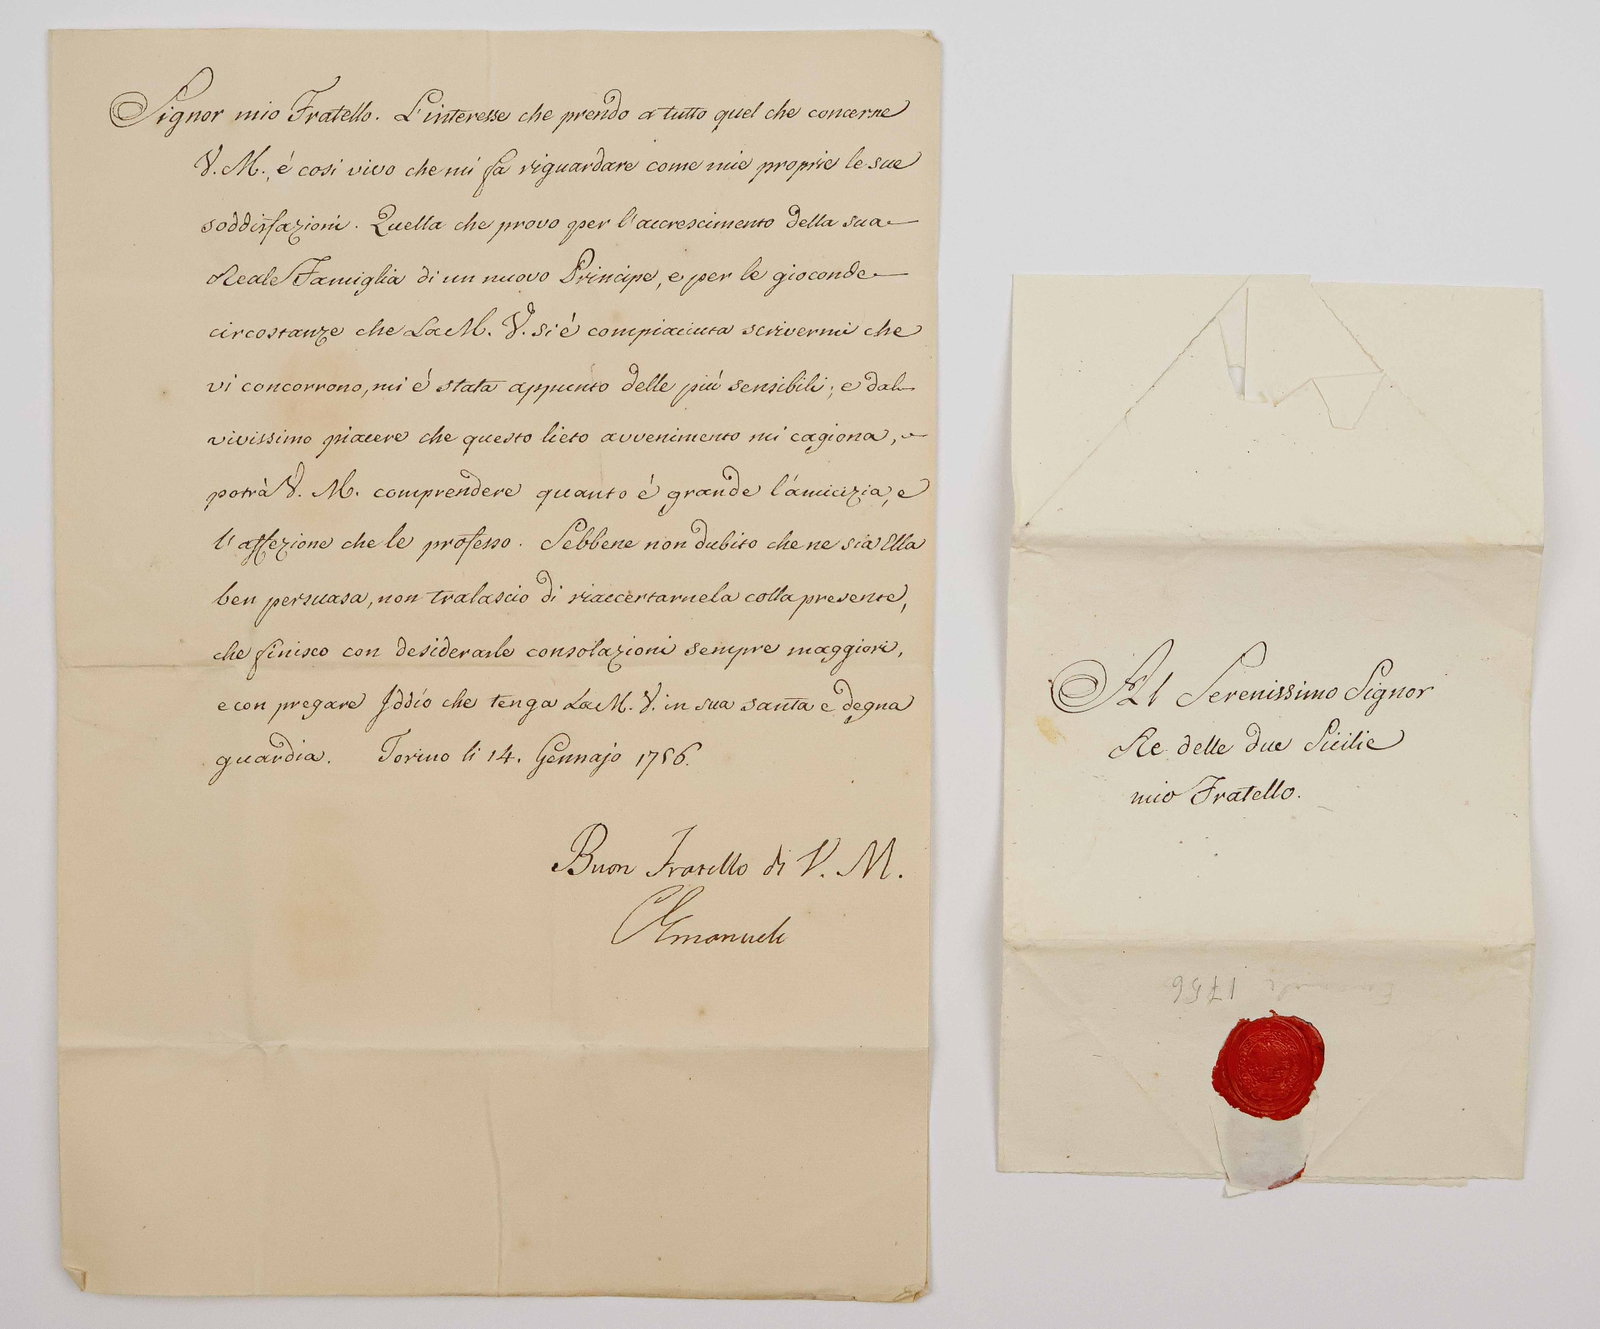 Signor mio Fratello. L'interesse che prendo a tutto quel che concerne
V. M., é cosi vivo che mi fa riguardare come mie proprie le sue
soddisfazioni. Quella che provo per l'accrescimento della sua
Reale Famiglia di un nuovo Principe, e per le gioconde
circostanze che La M. V. si é compiaciuta scrivermi che
vi concorrono, mi é stata appunto delle piú sensibili; e dal
vivissimo piacere che questo lieto avvenimento mi cagiona,
potrà V. M. comprendere quanto é grande l'amicizia, e
l'affezione che le professo. Sebbene non dubito che ne sia Ella
ben persuasa, non tralascio di riaccertarnela colla presente,
che finisco con desiderarle consolazioni sempre maggiori,
e con pregare Iddio che tenga La M. V. in sua santa e degna
guardia. Torino li 14. Gennajo 1756.
Buon Fratello di V. M.
CEmanuele
Al Serenissimo Signor
Re delle due Sicilie
mio Fratello.
1756